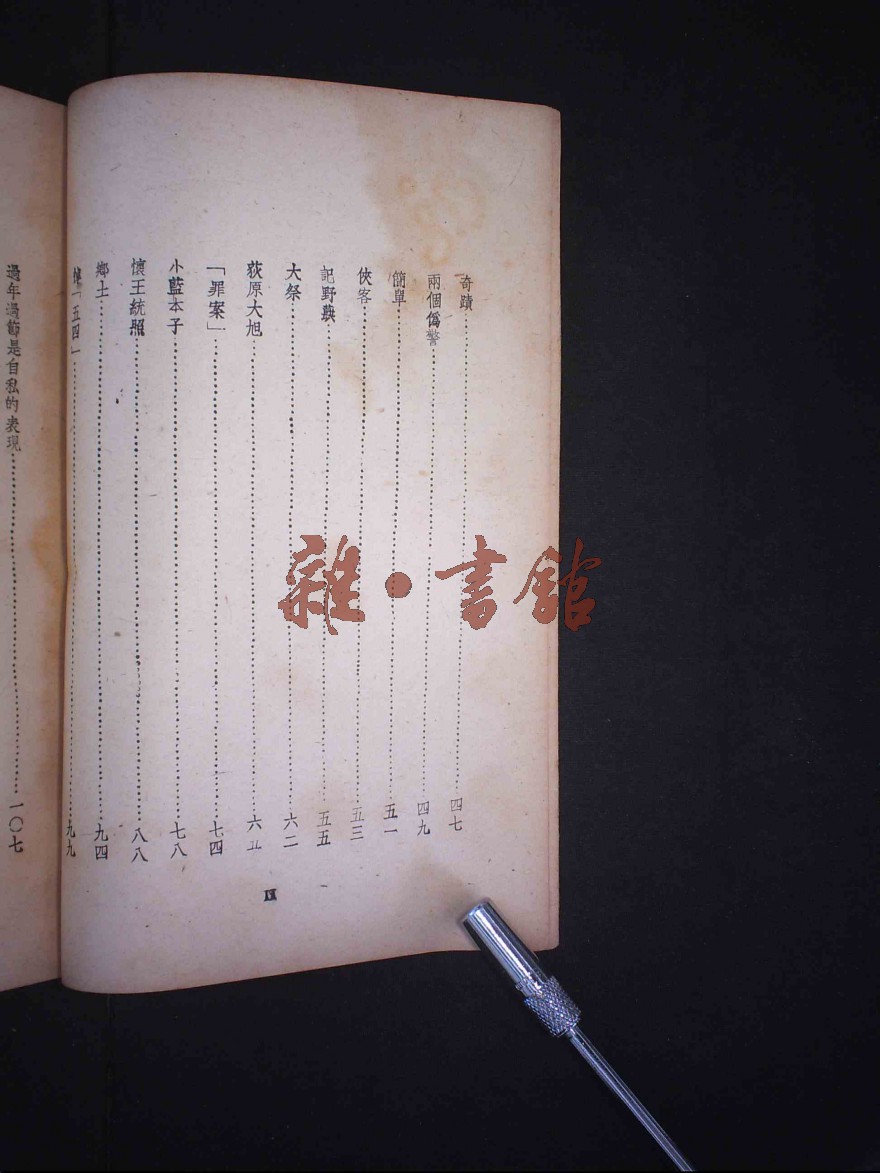 奇蹟⋯⋯四七
兩個僞警⋯⋯四九
簡單⋯⋯五一
俠客⋯⋯五三
記野蕻⋯⋯五五
大祭⋯⋯六二
荻原大旭⋯⋯六五
「罪案」⋯⋯七四
小藍本子⋯⋯七八
懷王統照⋯⋯八八
鄉土⋯⋯九四
「五四」⋯⋯九九
過年過節是自私的表現⋯⋯一〇七
雜·書館